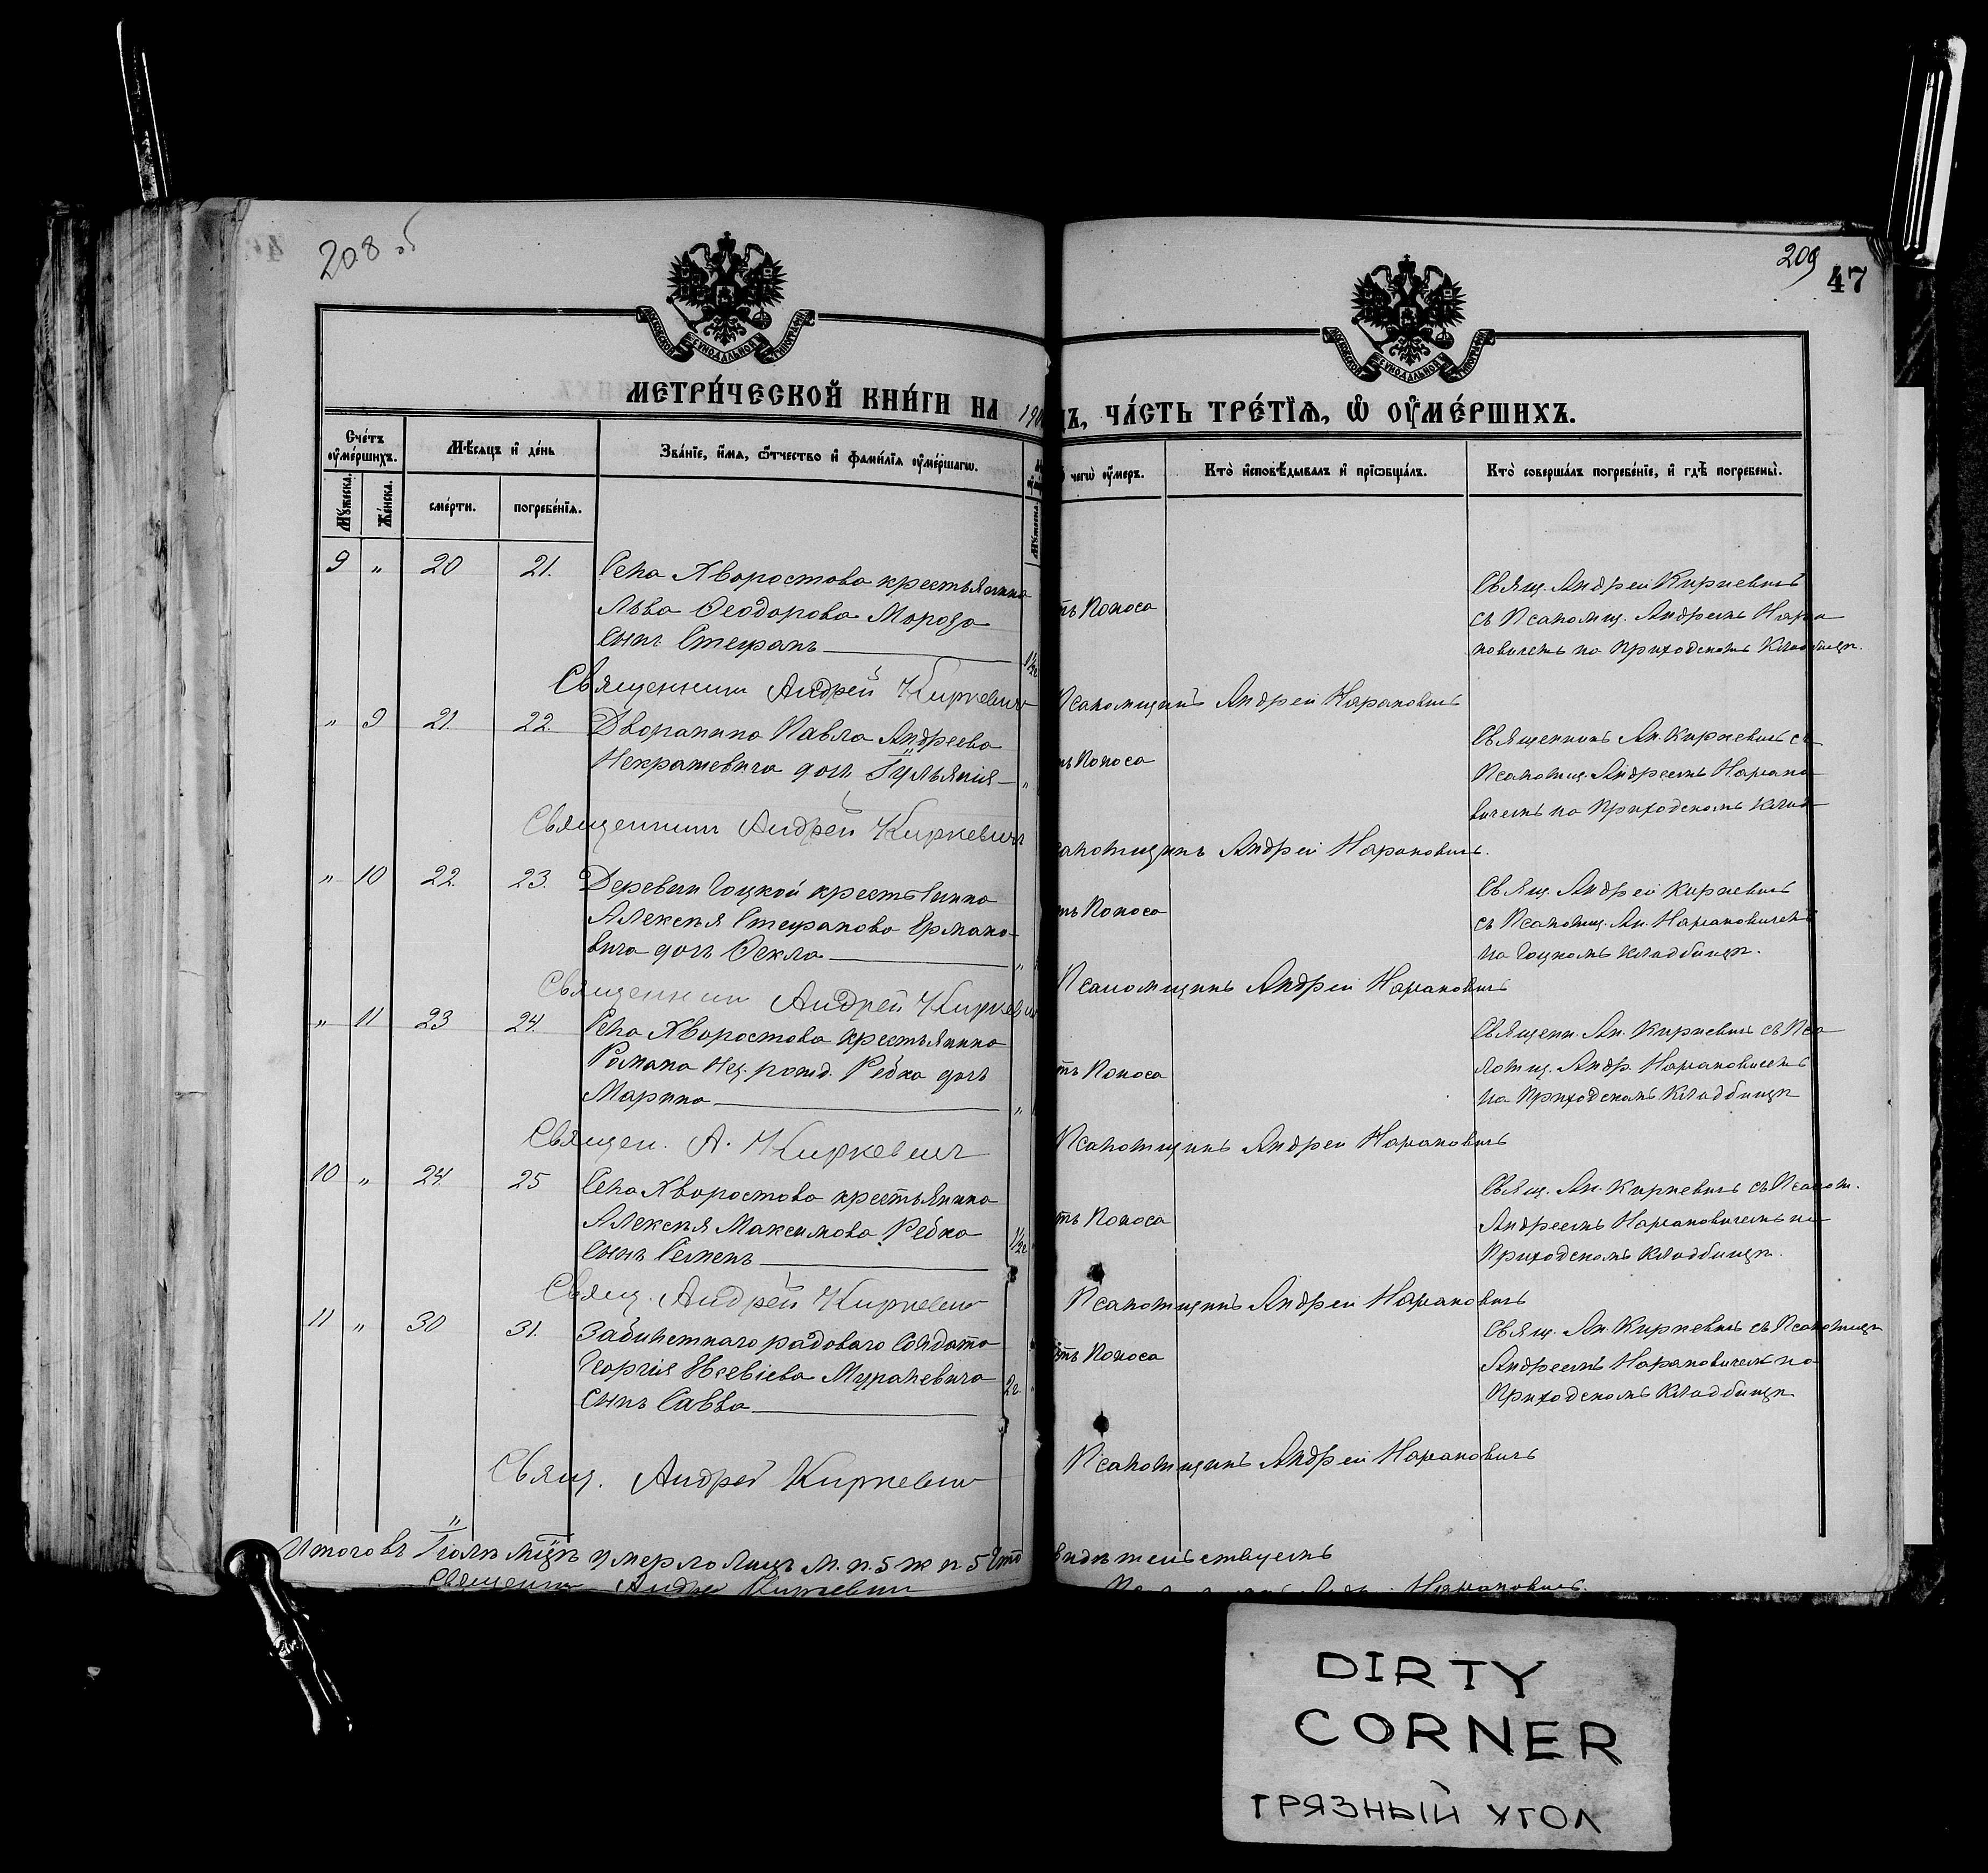 208 об
209
47
МОСКОВСКОЙ СѴНОДАЛЬНОЙ ТИПОГРАФІИ
МОСКОВСКОЙ СѴНОДАЛЬНОЙ ТИПОГРАФІИ
МЕТРИ́ЧЕСКОЙ КНИ́ГИ НА 190
ЧА́СТЬ ТРЕ́ТІѦ, Ѡ ОУ҆МЕ́РШИХЪ.
Сче́тъ оу҆ме́ршихъ.
Мѣ́сѧцъ и҆ де́нь
Зва́нїе, и҆́мѧ, ѻ҆́тчество и҆ фами́лїѧ оу҆ме́ршагѡ.
чегѡ̀ оу҆́меръ.
Кто̀ и҆сповѣ́дывалъ и҆ прїѡбща́лъ.
Кто̀ соверша́лъ погребе́нїе, и҆ гдѣ̀ погребены̀.
Мꙋ́жеска. Же́нска.
сме́рти. погребе́нїѧ.
Мꙋ́жеска.
9 „ 20 21. Села Хворостова крестьянина
Льва Ѳеодорова Мороза
сынъ Стефанъ 1½г
тъ Поноса
Свящ. Андрей Киркевичъ
съ Псаломщ. Андреемъ Нара
новичемъ на Приходскомъ Кладбищѣ.
Священникъ Андрей Киркевичъ
Псаломщикъ Андрей Нарановичъ
„ 9 21. 22. Дворянина Павла Андреева
Некрашевича дочь Іульянія „
тъ Поноса
Священникъ Ан. Киркевичъ съ
Псаломщ. Андреемъ Нарано
вичемъ на Приходскомъ Клад
Священникъ Андрей Киркевичъ
саломщикъ Андрей Нарановичъ.
„ 10 22. 23. Деревни Гоцкой крестьянина
Алексѣя Стефанова Ермако
вича дочь Ѳекла „
тъ Поноса
Свящ. Андрей Киркевичъ
съ Псаломщ. Ан. Нарановичемъ
на Гоцкомъ Кладбищѣ.
Священникъ Андрей Киркевич
Псаломщикъ Андрей Нарановичъ
„ 11 23 24. Села Хворостова крестьянина
Романа Нез. рожд. Ребко дочь
Марина „
тъ Поноса
Священ. Ан. Киркевичъ съ Пса
ломщ. Андр. Нарановичемъ
на Приходскомъ Кладбищѣ
Священ. А. Киркевич
Псаломщикъ Андрей Нарановичъ
10 „ 24. 25 Села Хворостова крестьянина
Алексѣя Максимова Ребко
сынъ Семенъ 1½г
тъ Поноса
Свящ. Ан. Киркевичъ съ Псалом.
Андреемъ Нарановичемъ на
Приходскомъ Кладбищѣ.
Свящ. Андрей Киркевич
Псаломщикъ Андрей Нарановичъ
11 „ 30 31. рядоваго Солдата
Георгія Мурашевича
сынъ Савва 2г.
тъ Поноса
Свящ. Ан. Киркевичъ съ Псаломщ
Андреемъ Нарановичемъ на
Приходскомъ Кладбищѣ
Свящ. Андрей Киркевич
Псаломщикъ Андрей Нарановичъ
Итого въ Іюлѣ мцѣ умерло лицъ м. п. 5 ж п. 5 Что
видѣтельствуемъ
Священник Андрей Киркевич
Нарановичъ.
DIRTY
CORNER
ГРЯЗНЫЙ УГОЛ